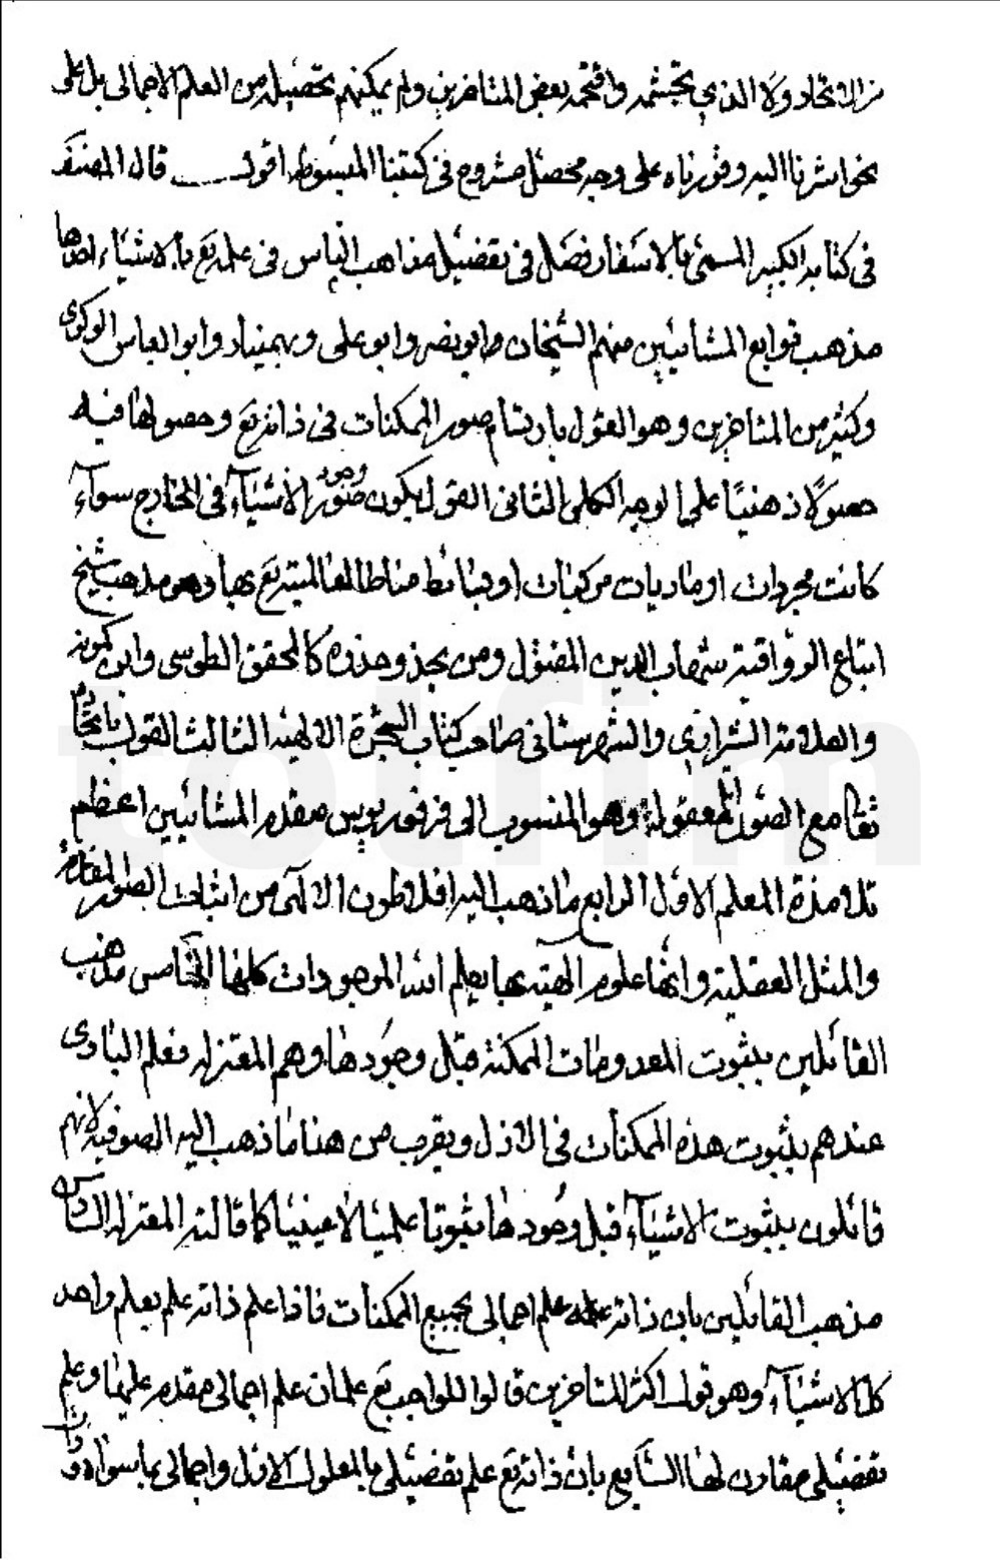 من الاتحاد ولا الذي تجشمه واقتحمه بعض المتاخرين ولم يمكنهم تحصيله من العلم الاجمالى بل على
نحو اشرنا اليه وقررناه على وجه محصل مشروح فى كتبنا المبسوطه اقول قال المصنف
فى كتابه الكبير المسمى بالاسفار فصل فى تفصيل مذاهب الناس فى علمه تع بالاشياء احدها
مذهب توابع المشائيين منهم الشيخان وابونصر وابو على وبهمنيار وابو العباس اللوكرى
وكثير من المتاخرين وهو القول بارتسام صور الممكنات فى ذاته تع وحصولها فيه
حصولا ذهنيا على الوجه الكلى الثانى القول بكون وجود صور الأشياء فى الخارج سواء
كانت مجردات او ماديات مركبات او بسائط مناطا لعالميته تع بها وهو مذهب شيخ
اتباع الرواقية شهاب الدين المقتول ومن يحذو حذوه كالمحقق الطوسى وابن كمونه
والعلامة الشيرازى والشهرستانى صاحب كتاب الشجرة الالهية الثالث القول باتحاده
تعا مع الصور المعقولة وهو المنسوب الى فرفوريوس مقدم المشائيين اعظم
تلامذة المعلم الاول الرابع ما ذهب اليه افلاطون الالهى من اثبات الصور المفارقة
والمثل العقلية وانها علوم الهية بها يعلم الله الموجودات كلها الخامس مذهب
القائلين بثبوت المعدومات الممكنة قبل وجودها وهم المعتزله فعلم البارى
عندهم بثبوت هذه الممكنات فى الازل ويقرب من هنا ما ذهب اليه الصوفيه لانهم
قائلون بثبوت الاشياء قبل وجودها ثبوتا علميا لا عينيا كما قالته المعتزله السادس
مذهب القائلين بان ذاته علم اجمالى بجميع الممكنات فاذا علم ذاته علم بعلم واحد
كل الاشياء وهو قول اكثر المتاخرين قالوا للواجب تع علمان علم اجمالى مقدم عليها وعلم
تفصيلى مقارن لها السابع بان ذاته تع علم تفصيلى بالمعلول الاول واجمالى بما سواه وان